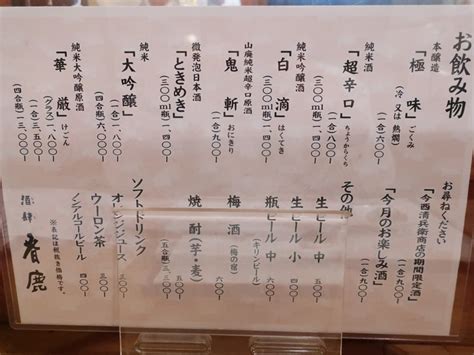 お飲み物
本醸造
「極味」ごくみ
(冷 又は 熱燗)
(一合)六〇〇-
純米酒
「超辛口」ちょうからくち
(一合)七〇〇-
(三〇〇ml)一、
純米吟醸酒
「白滴」はくてき
(三〇〇ml)一、
山廃純米超辛口原酒
「鬼斬」おにきり
(一合)九〇〇-
微発泡日本酒
「ときめき」
(三〇〇ml)一、四〇〇-
純米
「大吟醸」
(一合)一、八〇〇-
純米大吟醸原酒
「華厳」けごん
(グラス)一、
(一合)
(四合瓶)一
お尋ねください
「今西清兵衛商店の期間限定酒」
(一合)九〇〇-
「今月のお楽しみ酒」
(一合)九〇〇-
その他
生ビール 中 五〇〇-
生ビール 小 四〇〇-
瓶ビール 中 六〇〇-
(キリンビール)
梅酒
(梅の宿) 六〇〇-
焼酎(芋・麦)
(五合瓶)三、
ソフトドリンク
オレンジジュース 三〇〇-
ウーロン茶 三〇〇-
ノンアルコールビール 四〇〇-
※表記は税抜き価格です。
酒肆 春鹿